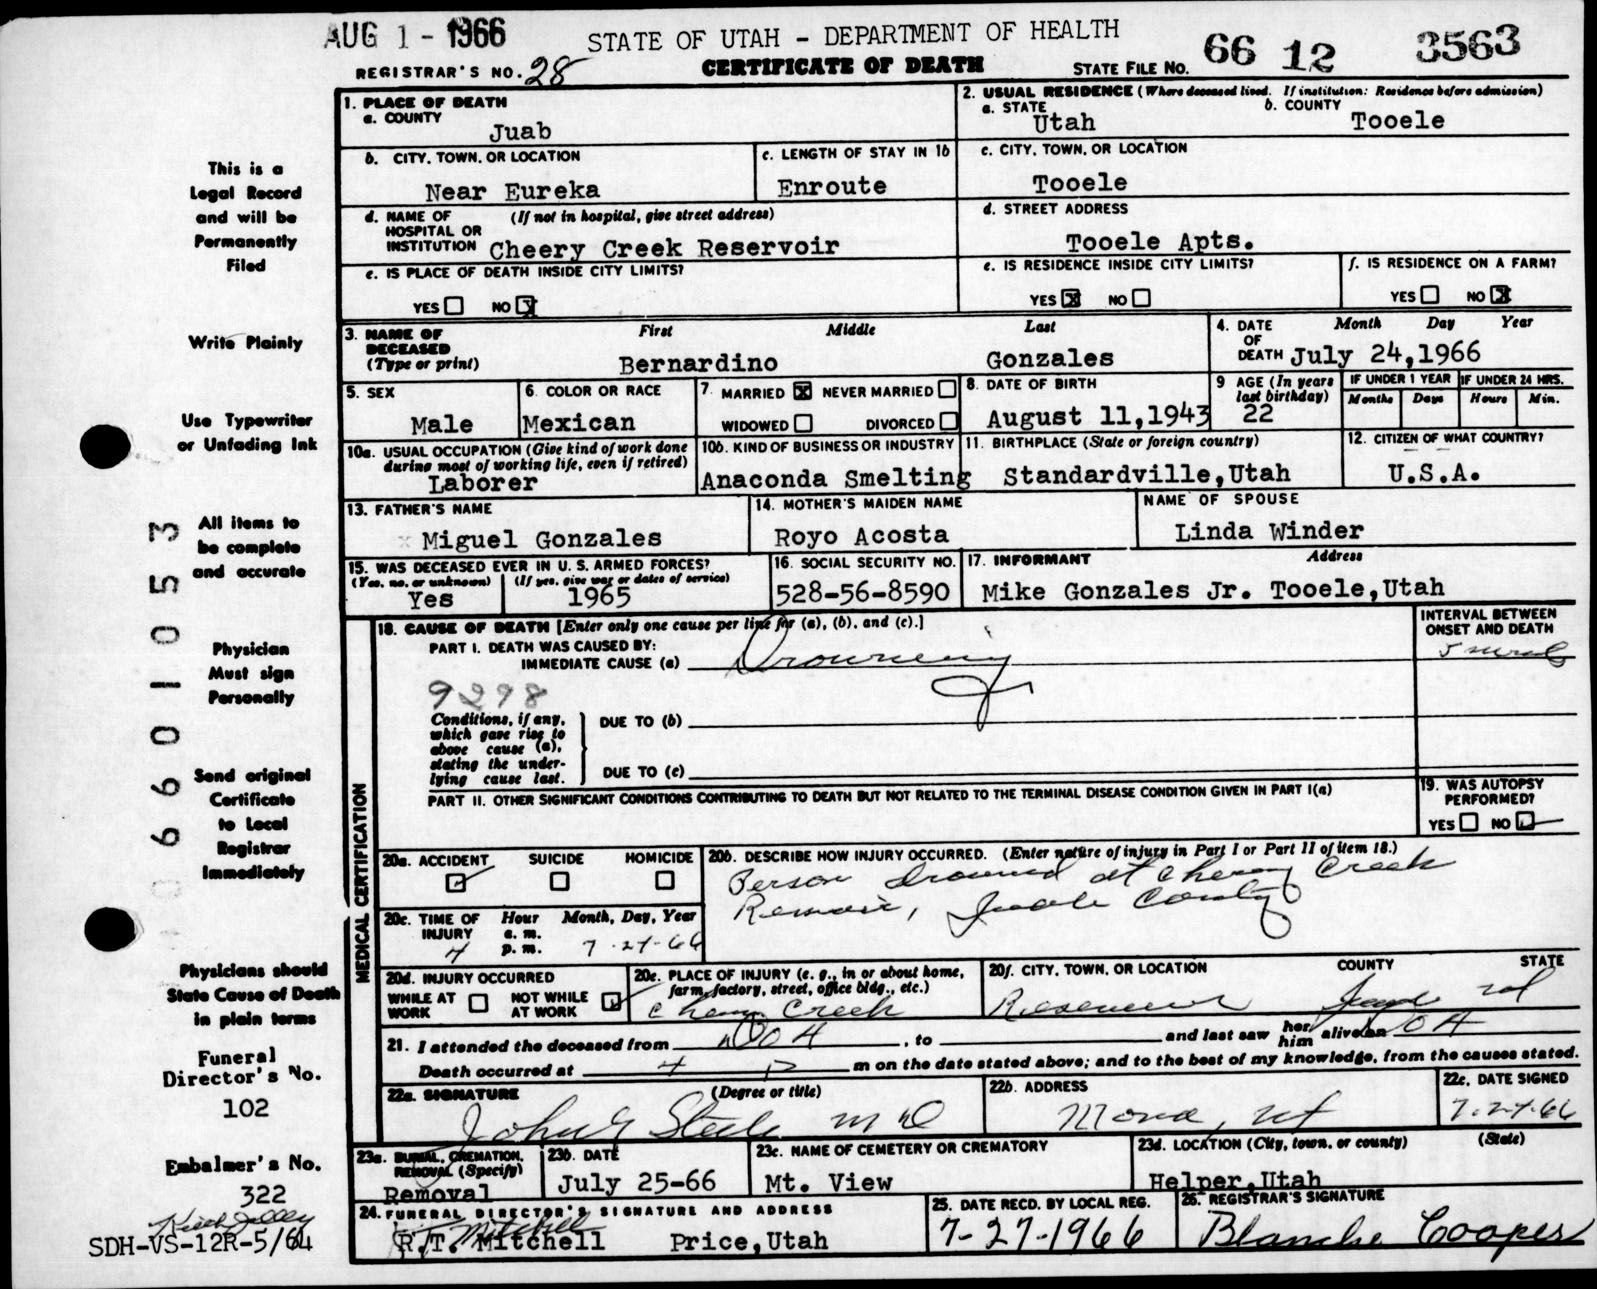 AUG 1 - 1966
STATE OF UTAH - DEPARTMENT OF HEALTH
66 12 3563
REGISTRAR'S NO. 28
CERTIFICATE OF DEATH
STATE FILE NO.
This is a
Legal Record
and will be
Permanently
Filed
Write Plainly
Use Typewriter
or Unfading Ink
All items to
be complete
and accurate
Physician
Must sign
Personally
Send original
Certificate
to Local
Registrar
Immediately
Physicians should
State Cause of Death
in plain terms
Funeral
Director's No.
102
Embalmer's No.
322
SDH-VS-12R-5/64
06601053
1. PLACE OF DEATH
a. COUNTY
Juab
2. USUAL RESIDENCE (Where deceased lived. If institution: Residence before admission)
a. STATE
Utah
b. COUNTY
Tooele
b. CITY, TOWN, OR LOCATION
Near Eureka
c. LENGTH OF STAY IN 1b
Enroute
c. CITY, TOWN, OR LOCATION
Tooele
d. NAME OF HOSPITAL OR INSTITUTION
(If not in hospital, give street address)
Cheery Creek Reservoir
d. STREET ADDRESS
Tooele Apts.
e. IS PLACE OF DEATH INSIDE CITY LIMITS?
YES NO X
e. IS RESIDENCE INSIDE CITY LIMITS?
YES X NO
f. IS RESIDENCE ON A FARM?
YES NO X
3. NAME OF DECEASED
(Type or print)
First Middle Last
Bernardino Gonzales
4. DATE OF DEATH
Month Day Year
July 24,1966
5. SEX
Male
6. COLOR OR RACE
Mexican
7. MARRIED X NEVER MARRIED
WIDOWED DIVORCED
8. DATE OF BIRTH
August 11,1943
9 AGE (In years last birthday)
22
IF UNDER 1 YEAR
Months Days
IF UNDER 24 HRS.
Hours Min.
10a. USUAL OCCUPATION (Give kind of work done during most of working life, even if retired)
Laborer
10b. KIND OF BUSINESS OR INDUSTRY
Anaconda Smelting
11. BIRTHPLACE (State or foreign country)
Standardville,Utah
12. CITIZEN OF WHAT COUNTRY?
U.S.A.
13. FATHER'S NAME
Miguel Gonzales
14. MOTHER'S MAIDEN NAME
Royo Acosta
NAME OF SPOUSE
Linda Winder
15. WAS DECEASED EVER IN U. S. ARMED FORCES?
(Yes, no, or unknown) (If yes, give war or dates of service)
Yes 1965
16. SOCIAL SECURITY NO.
528-56-8590
17. INFORMANT Address
Mike Gonzales Jr. Tooele,Utah
MEDICAL CERTIFICATION
18. CAUSE OF DEATH [Enter only one cause per line for (a), (b), and (c).]
INTERVAL BETWEEN
ONSET AND DEATH
PART I. DEATH WAS CAUSED BY:
IMMEDIATE CAUSE (a) Drowning
9298
Conditions, if any,
which gave rise to
above cause (a),
stating the under-
lying cause last.
DUE TO (b)
DUE TO (c)
PART II. OTHER SIGNIFICANT CONDITIONS CONTRIBUTING TO DEATH BUT NOT RELATED TO THE TERMINAL DISEASE CONDITION GIVEN IN PART I(a)
19. WAS AUTOPSY
PERFORMED?
YES NO
20a. ACCIDENT SUICIDE HOMICIDE
20b. DESCRIBE HOW INJURY OCCURRED. (Enter nature of injury in Part I or Part II of item 18.)
Person drowned at Cherry Creek
County
20c. TIME OF INJURY
Hour Month, Day, Year
a. m.
p. m.
4 7-24-66
20d. INJURY OCCURRED
WHILE AT WORK NOT WHILE AT WORK
20e. PLACE OF INJURY (e. g., in or about home, farm, factory, street, office bldg., etc.)
Cherry Creek
20f. CITY, TOWN, OR LOCATION COUNTY STATE
21. I attended the deceased from DOA , to and last saw her him alive on DOA
Death occurred at 4 P m on the date stated above; and to the best of my knowledge, from the causes stated.
22a. SIGNATURE (Degree or title)
John G Steele M D
22b. ADDRESS
Mona, Ut
22c. DATE SIGNED
7-24-66
23a. BURIAL, CREMATION, REMOVAL (Specify)
Removal
23b. DATE
July 25-66
23c. NAME OF CEMETERY OR CREMATORY
Mt. View
23d. LOCATION (City, town, or county) (State)
Helper,Utah
24. FUNERAL DIRECTOR'S SIGNATURE AND ADDRESS
R.T. Mitchell Price,Utah
25. DATE RECD. BY LOCAL REG.
7-27-1966
26. REGISTRAR'S SIGNATURE
Blanche Cooper